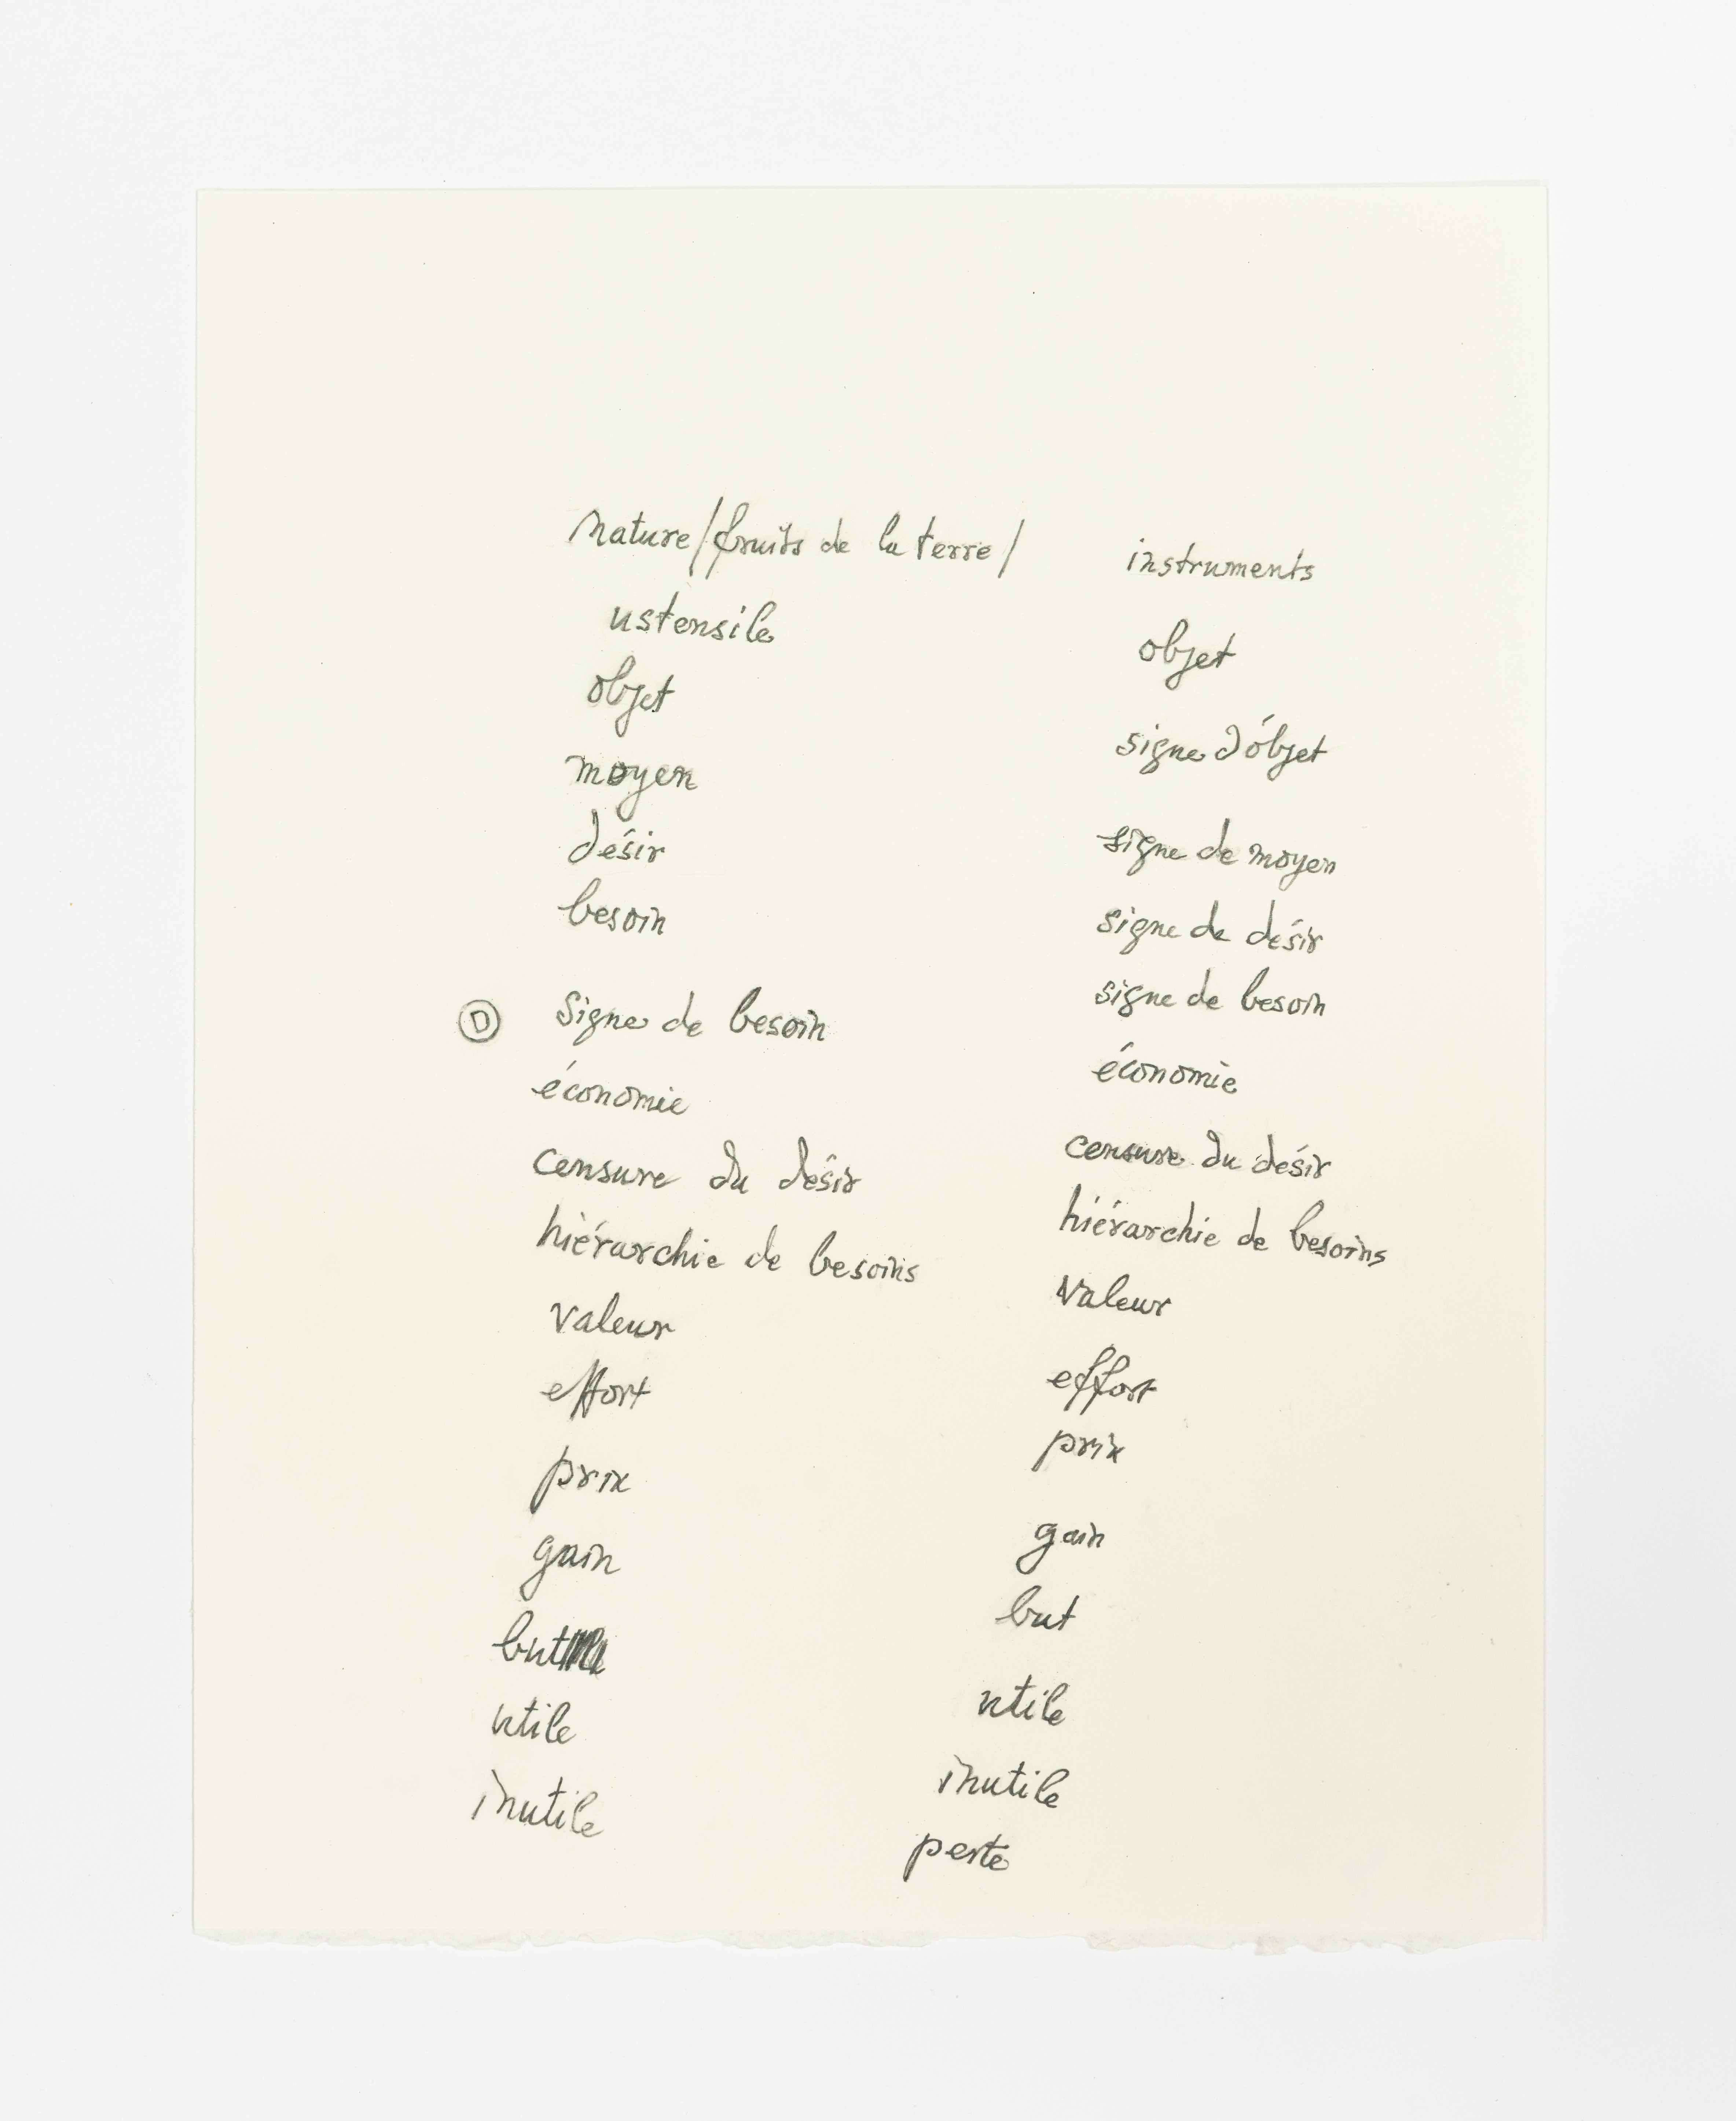 Nature/fruits de la terre/
ustensile
objet
moyen
désir
besoin
Ⓓ Signe de besoin
économie
censure du désir
hiérarchie de besoins
valeur
effort
prix
gain
but
utile
inutile
instruments
objet
signe d'óbjet
signe de moyen
signe de désir
signe de besoin
économie
censure du désir
hiérarchie de besoins
valeur
effort
prix
gain
but
utile
inutile
perte